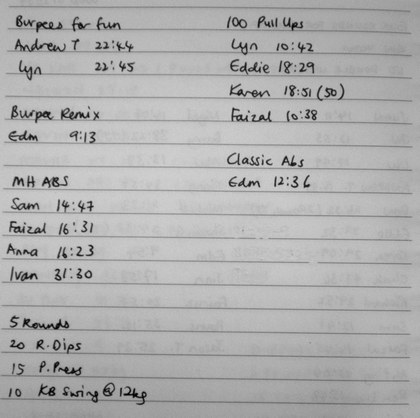 Burpees for fun
Andrew T 22:44
Lyn 22:45
Burpee Remix
Edm 9:13
MH ABS
Sam 14:47
Faizal 16:31
Anna 16:23
Ivan 31:30
5 Rounds
20 R. Dips
15 P. Press
10 KB Swing @ 12kg
100 Pull Ups
Lyn 10:42
Eddie 18:29
Karen 18:51 (50)
Faizal 10:38
Classic Abs
Edm 12:36